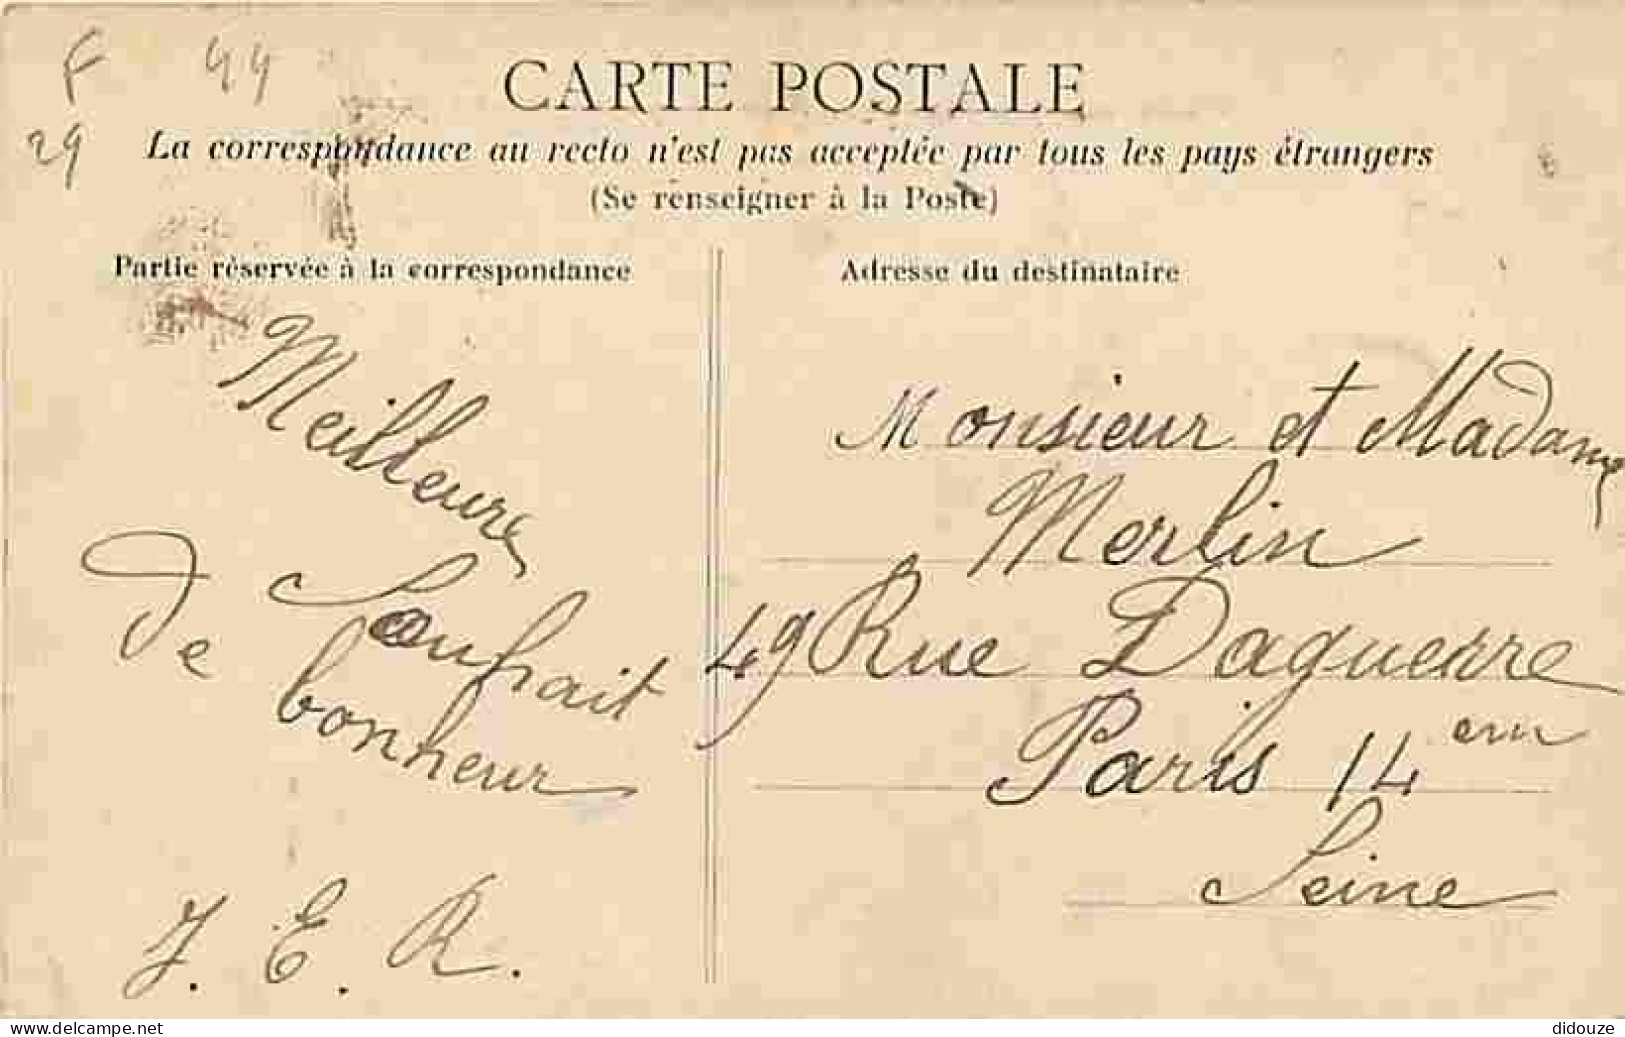 F 44
29
CARTE POSTALE
La correspondance au recto n'est pas acceptée par tous les pays étrangers
(Se renseigner à la Poste)
Partie réservée à la correspondance
Meilleure
Souhait
de bonheur
J. E. R.
Adresse du destinataire
Monsieur et Madame
Merlin
49 Rue Daguerre
Paris 14 em
Seine
www.delcampe.net
didouze